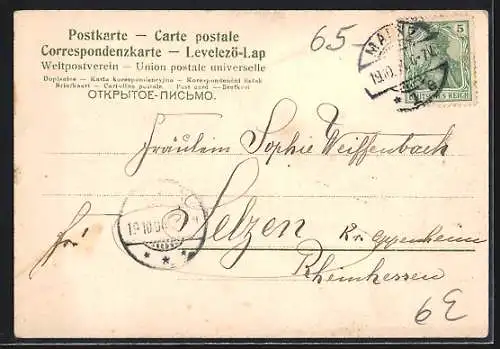 Postkarte — Carte postale
Correspondenzkarte — Levelező-Lap
Weltpostverein — Union postale universelle
Dopisnice — Karta korespondencyjna — Korespondenční lístek
Briefkaart — Cartolina postale — Post card — Brefkort
ОТКРЫТОЕ-ПИСЬМО.
65-
MAINZ
5
REICH
Fräulein Sophie Weiffenbach
19.10.
Selzen
Kr. Oppenheim
Rheinhessen
6E